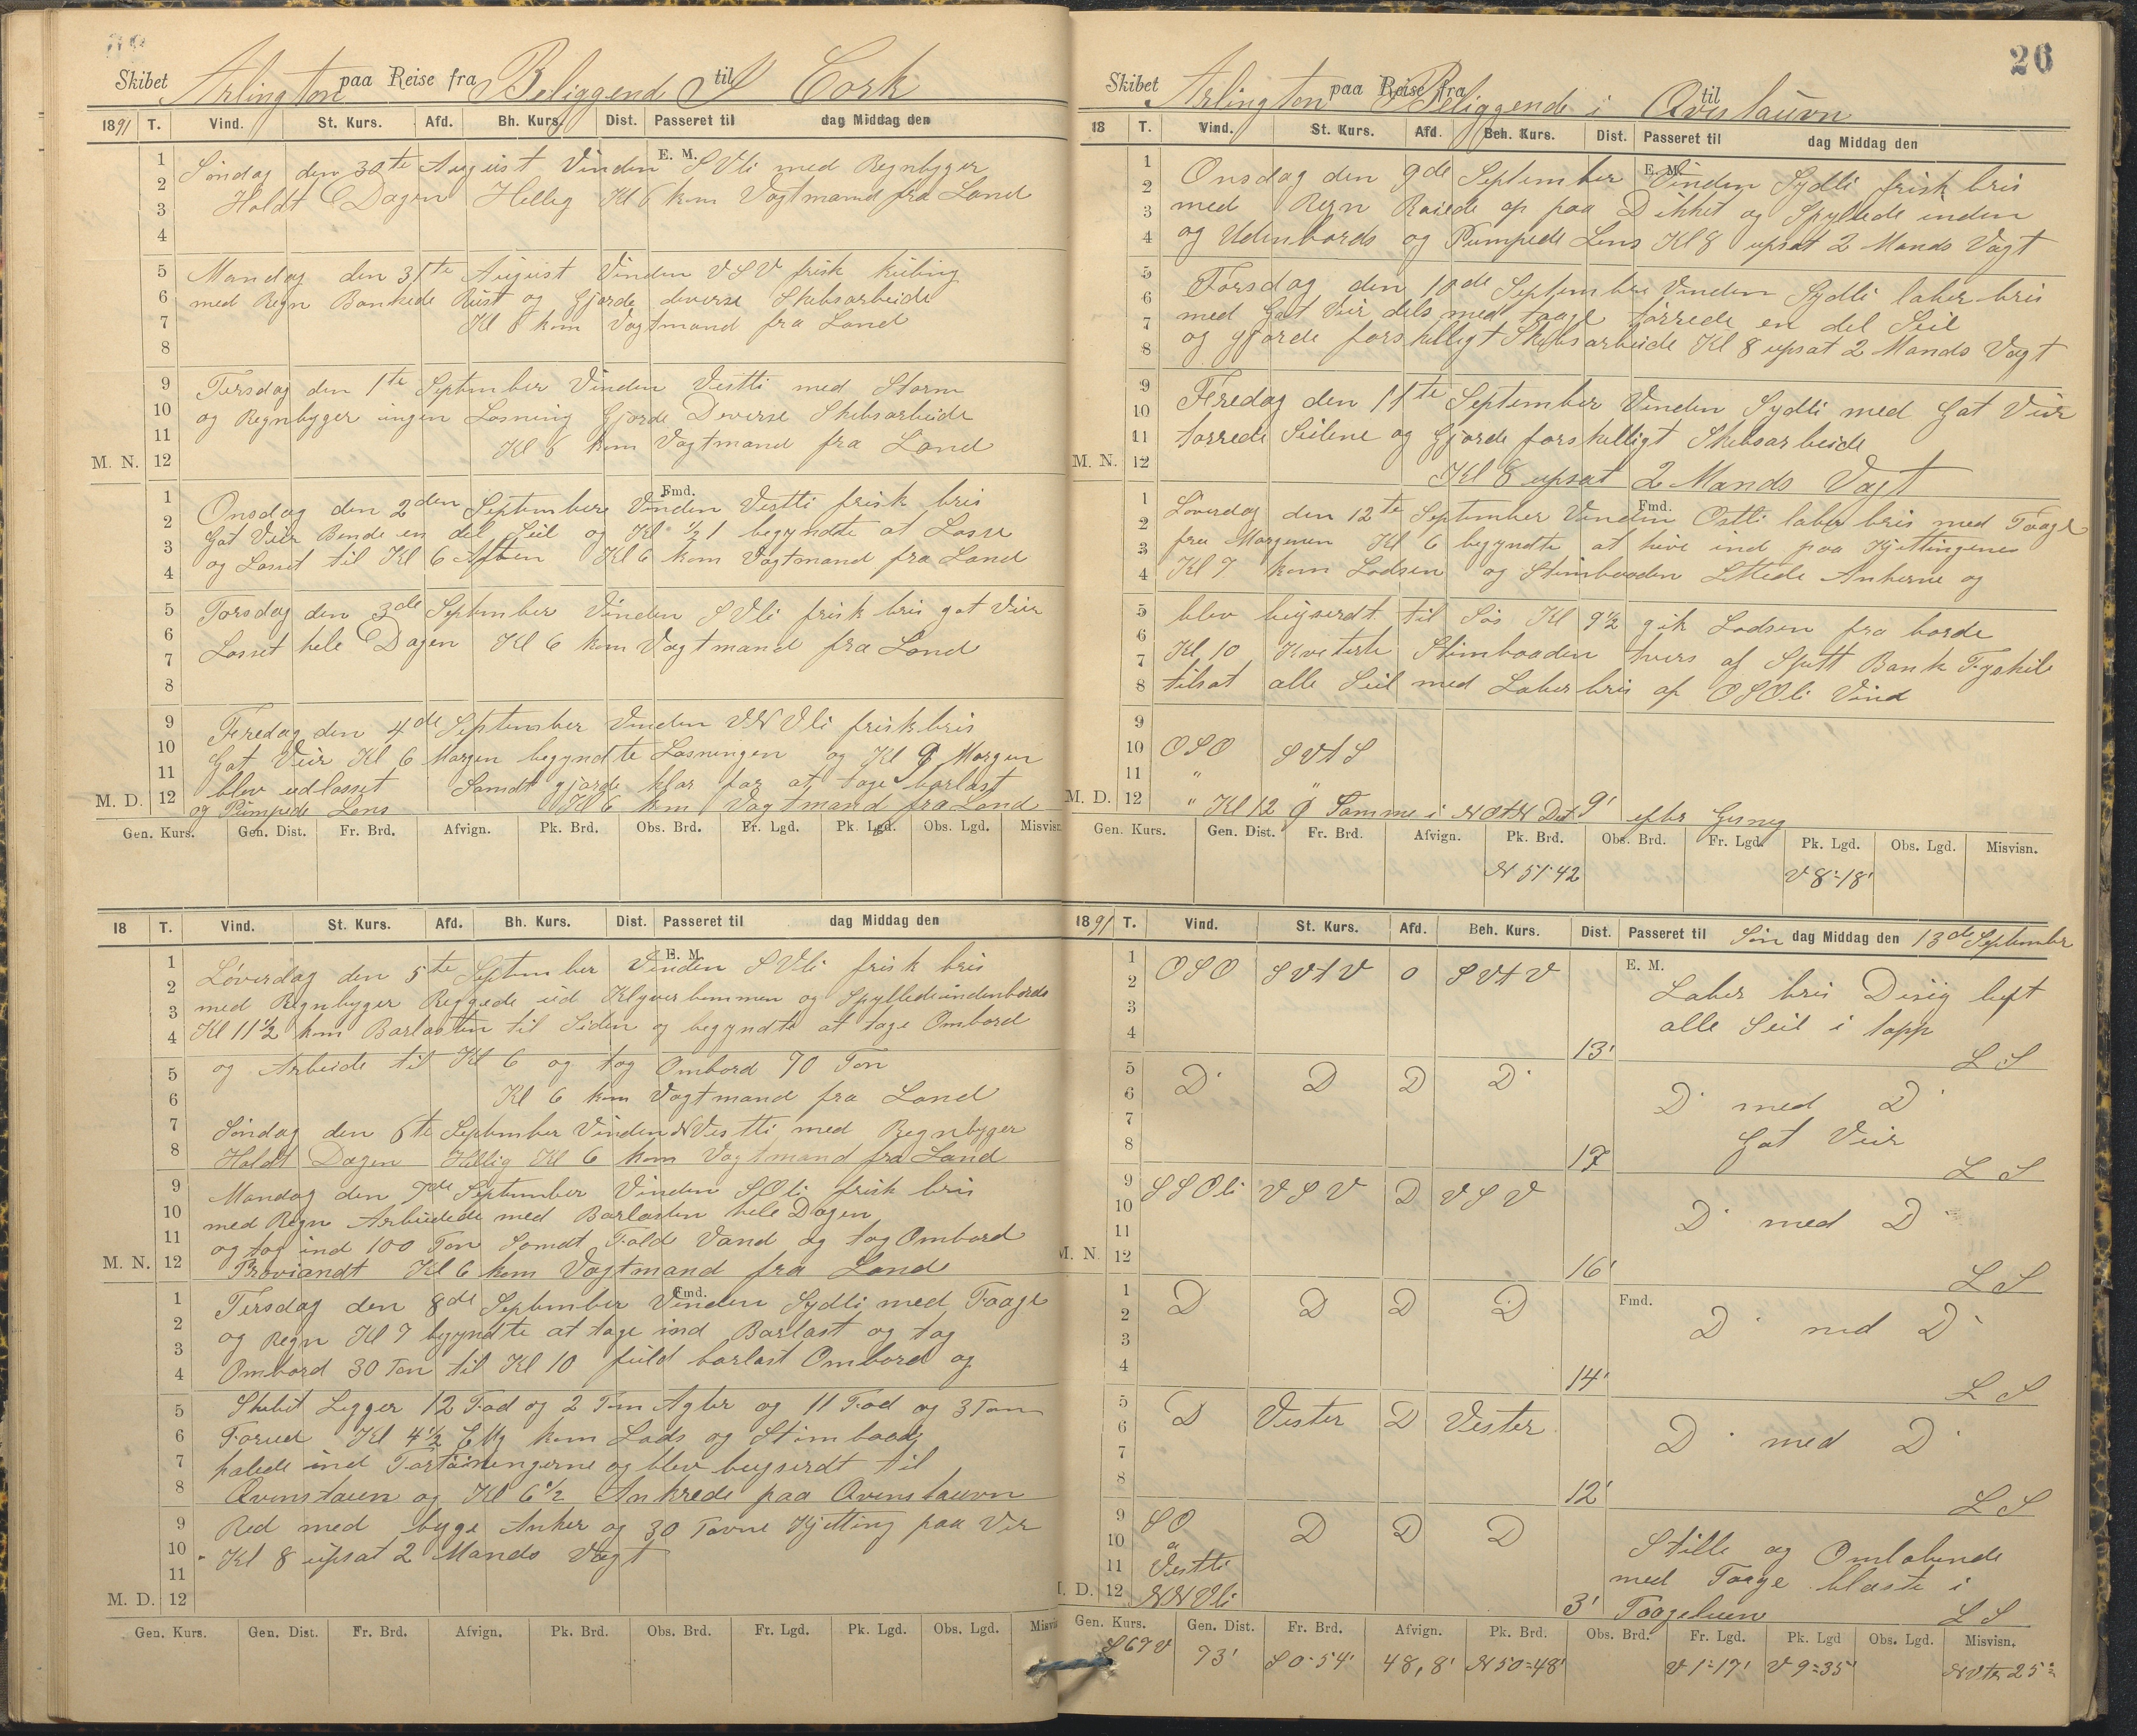 Skibet Arlington paa Reise fra Beliggende i til Cork
1891 T. Vind. St. Kurs. Afd. Bh. Kurs. Dist. Passeret til dag Middag den
E. M.
1 2 3 4
Søndag den 30te August Vinden SVli med Regnbyger
Holdt Dagen Hellig Kl 6 kom Vagtmand fra Land
5 6 7 8
Mandag den 31te August Vinden VSV frisk kuling
med Regn Bankede Rust og Gjorde deverse Skibsarbeide
Kl 6 kom Vagtmand fra Land
9 10 11 12 M. N.
Tirsdag den 1te September Vinden Vestli med Storm
og Regnbyger ingen Losning Gjorde Deverse Skibsarbeide
Kl 6 kom Vagtmand fra Land
Fmd.
1 2 3 4
Onsdag den 2den September Vinden Vestli frisk bris
Gat Veir Bende en del Seil og Kl ½ 1 begyndte at Losse
og Losset til Kl 6 Aften Kl 6 kom Vagtmand fra Land
5 6 7 8
Torsdag den 3de September Vinden SVli frisk bris gat Veir
Losset hele Dagen Kl 6 kom Vagtmand fra Land
9 10 11 12 M. D.
Feredag den 4de September Vinden VNVli frisk bris
Gat Veir Kl 6 Morgen begyndte Losningen og Kl 9 Morgen
blev udlosset Samdt gjorde klar for at tage barlast
og Pumpede Lens Kl 6 kom Vagtmand fra Land
Gen. Kurs. Gen. Dist. Fr. Brd. Afvign. Pk. Brd. Obs. Brd. Fr. Lgd. Pk. Lgd. Obs. Lgd. Misvisn.
18 T. Vind. St. Kurs. Afd. Bh. Kurs. Dist. Passeret til dag Middag den
E. M.
1 2 3 4
Løverdag den 5te September Vinden SVli frisk bris
med Regnbyger Reggede ud Klyverbommen og Spyllede indenbords
Kl 11½ kom Barlasten til Siden og begyndte at tage Ombord
5 6 7 8
og Arbeide til Kl 6 og tog Ombord 70 Ton
Kl 6 kom Vagtmand fra Land
Søndag den 6te September Vinden NVestli med Regnbyger
Holdt Dagen Hellig Kl 6 kom Vagtmand fra Land
9 10 11 12 M. N.
Mandag den 7de September Vinden SOli frisk bris
med Regn Arbeidede med Barlasten hele Dagen
og tog ind 100 Ton Samdt Fald Vand og tog Ombord
Proviandt Kl 6 kom Vagtmand fra Land
Fmd.
1 2 3 4
Tirsdag den 8de September Vinden Sydli med Taage
og Regn Kl 7 begyndte at tage ind Barlast og tog
Ombord 30 Ton til Kl 10 fuld barlast Ombord og
5 6 7 8
Skibet Legger 12 Fod og 2 Tom Agter og 11 Fod og 3 Tom
Forud Kl 4½ Efm kom Lods og Stimbaad
halede ind Fortøiningerne og blev bugserdt til
Qvinstaun og Kl 6½ Ankrede paa Qvinstauvn
9 10 11 12 M. D.
Red med byge Anker og 30 Favne Kjetting paa Ver
Kl 8 upsat 2 Mands Vagt
Gen. Kurs. Gen. Dist. Fr. Brd. Afvign. Pk. Brd. Obs. Brd. Fr. Lgd. Pk. Lgd. Obs. Lgd. Misvisn.
26
Skibet Arlington paa Reise fra Beliggende i til Qvistauvn
18 T. Vind. St. Kurs. Afd. Beh. Kurs. Dist. Passeret til dag Middag den
E. M.
1 2 3 4
Onsdag den 9de September Vinden Sydli frisk bris
med Regn Raiede op paa Dikket og Spyllede inden
og Udenbords og Pumpede Lens Kl 8 upsat 2 Mands Vagt
5 6 7 8
Torsdag den 10de September Vinden Sydli laber bris
med Gat Veir dels med taage tørrede en del Seil
og gjorde forskelligt Skibsarbeide Kl 8 upsat 2 Mands Vagt
9 10 11 12 M. N.
Feredag den 11te September Vinden Sydli med Gat Veir
tørrede Seilene og Gjorde forskelligt Skibsarbeide
Kl 8 upsat 2 Mands Vagt
Fmd.
1 2 3 4
Løverdag den 12te September Vinden Ostli laber bris med Taage
fra Morgenen Kl 6 begyndte at hive ind paa Kjettingene
Kl 7 kom Lodsen og Stimbaaden Lettede Ankerne og
5 6 7 8
blev bugserdt til Søs Kl 9½ gik Lodsen fra borde
Kl 10 Kviterte Stimbaaden tvers af Spitt Bank Fyrskib
tilsat alle Seil med Laber bris af OSOli Vind
9 10 11 12 M. D.
OSO SVtS
" "
" Kl 12 Φ Samme i NOtN Dst 9' efter Gisning
Gen. Kurs. Gen. Dist. Fr. Brd. Afvign. Pk. Brd. Obs. Brd. Fr. Lgd. Pk. Lgd. Obs. Lgd. Misvisn.
N 51°42 V 8°-18'
1891 T. Vind. St. Kurs. Afd. Beh. Kurs. Dist. Passeret til Søn dag Middag den 13de September
E. M.
1 2 3 4
OSO SVtV 0 SVtV Laber bris Disig luft
alle Seil i topp
13' L S
5 6 7 8
D D D D D med D
Gat Veir
17 L S
9 10 11 12 M. N.
SSOli VSV D VSV D med D
16' L S
Fmd.
1 2 3 4
D D D D D med D
14' L S
5 6 7 8
D Vester D Vester D med D
12' L S
9 10 11 12 M. D.
SO D D D Stille og Omløbende
a
Vestli med Taage blæste i
NNVli 3' Taageluen L S
Gen. Kurs. Gen. Dist. Fr. Brd. Afvign. Pk. Brd. Obs. Brd. Fr. Lgd. Pk. Lgd Obs. Lgd. Misvisn.
S 67 V 73' S 0°-54' 48,8' N 50°-48' V 1°-17' V 9°-35' NVtr 25°